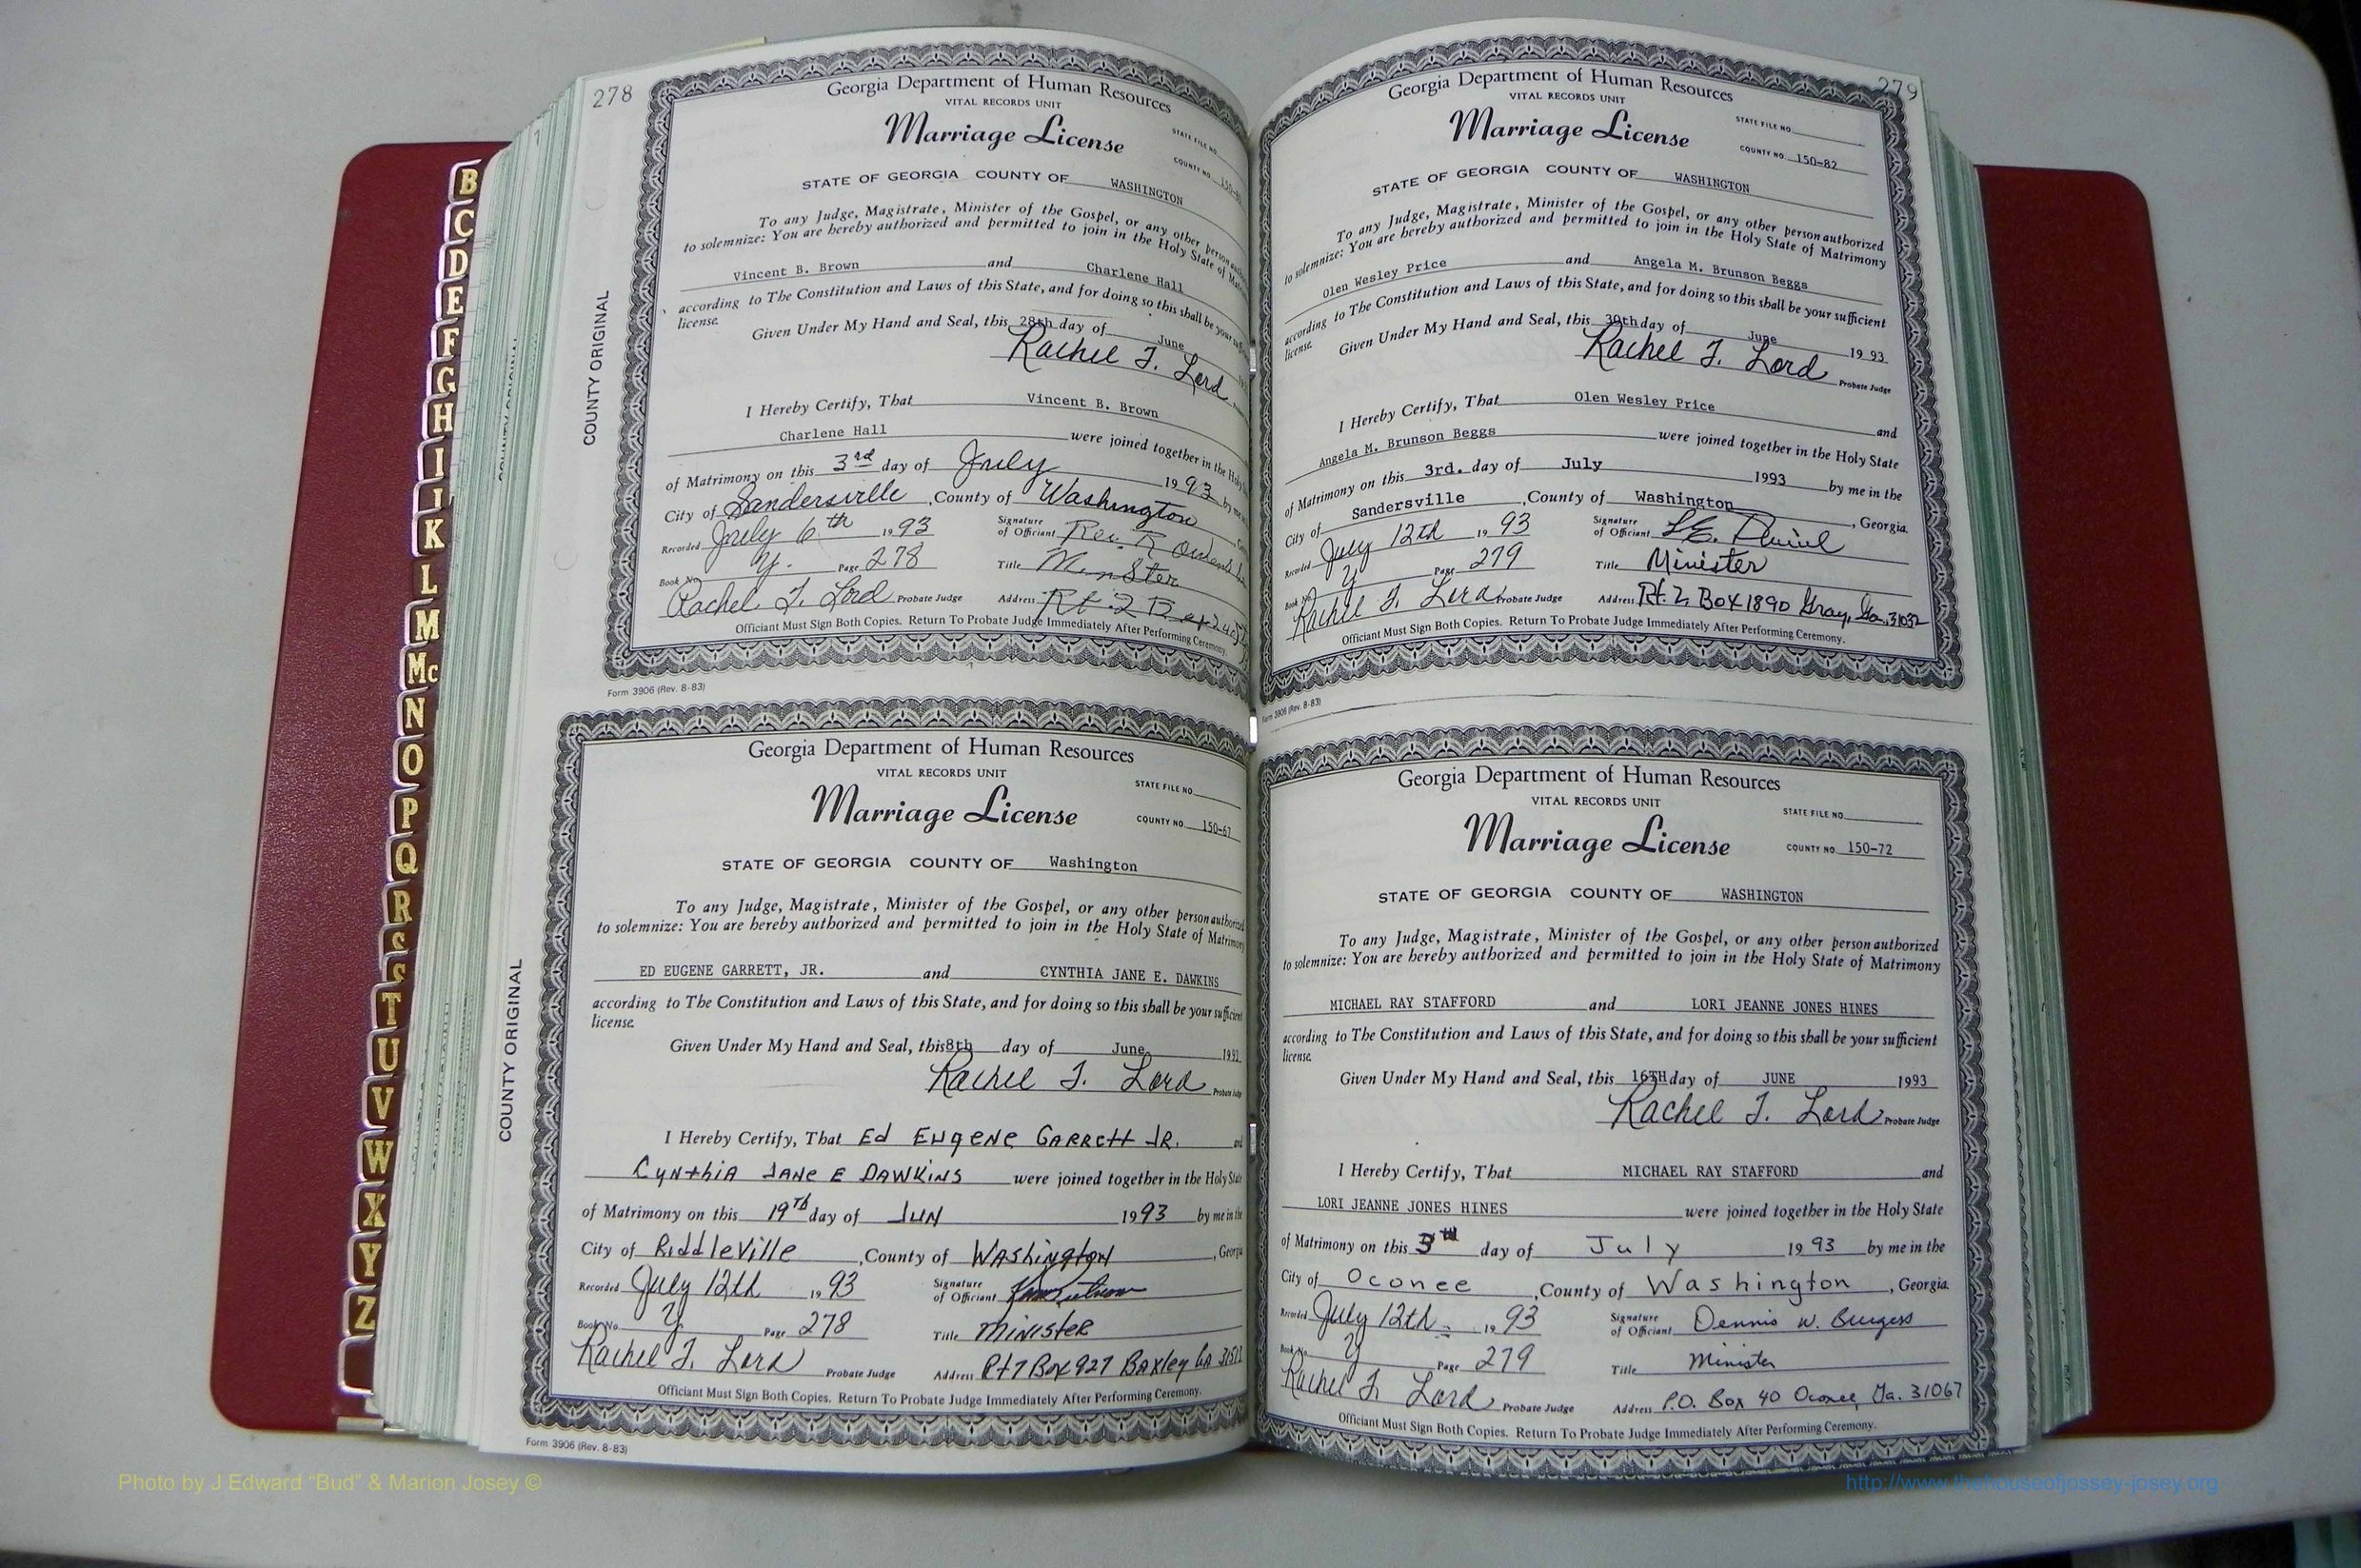 278
Georgia Department of Human Resources
VITAL RECORDS UNIT
Marriage License
STATE FILE NO.
COUNTY NO.
STATE OF GEORGIA COUNTY OF WASHINGTON
To any Judge, Magistrate, Minister of the Gospel, or any other person
to solemnize: You are hereby authorized and permitted to join in the Holy State of
Vincent B. Brown and Charlene Hall
according to The Constitution and Laws of this State, and for doing so this shall be your
license.
Given Under My Hand and Seal, this 28th day of June
Rachel T. Lord
I Hereby Certify, That Vincent B. Brown
Charlene Hall were joined together in the Holy
of Matrimony on this 3rd day of July 1993 by me
City of Sandersville, County of Washington
Recorded July 6th 1993 Signature of Officiant Rev. R
Book No. Y. Page 278 Title Minster
Rachel T. Lord Probate Judge Address Rt. 2 Box
Officiant Must Sign Both Copies. Return To Probate Judge Immediately After Performing Ceremony.
Form 3906 (Rev. 8-83)
COUNTY ORIGINAL
Georgia Department of Human Resources
VITAL RECORDS UNIT
Marriage License
STATE FILE NO.
COUNTY NO. 150-67
STATE OF GEORGIA COUNTY OF Washington
To any Judge, Magistrate, Minister of the Gospel, or any other person authorized
to solemnize: You are hereby authorized and permitted to join in the Holy State of Matrimony
ED EUGENE GARRETT, JR. and CYNTHIA JANE E. DAWKINS
according to The Constitution and Laws of this State, and for doing so this shall be your sufficient
license.
Given Under My Hand and Seal, this 8th day of June 1993
Rachel T. Lord Probate Judge
I Hereby Certify, That Ed EugeNe GARRett JR. and
CyNthiA JANe E DAWKiNS were joined together in the Holy State
of Matrimony on this 19Th day of JUN 1993 by me in the
City of RiddleVille, County of WAShiNgtoN, Georgia
Recorded July 12th 1993 Signature of Officiant
Book No. Y Page 278 Title MiNisteR
Rachel T. Lord Probate Judge Address Rt 7 Box 927 BAxley GA
Officiant Must Sign Both Copies. Return To Probate Judge Immediately After Performing Ceremony.
Form 3906 (Rev. 8-83)
COUNTY ORIGINAL
279
Georgia Department of Human Resources
VITAL RECORDS UNIT
Marriage License
STATE FILE NO.
COUNTY NO. 150-82
STATE OF GEORGIA COUNTY OF WASHINGTON
To any Judge, Magistrate, Minister of the Gospel, or any other person authorized
to solemnize: You are hereby authorized and permitted to join in the Holy State of Matrimony
Olen Wesley Price and Angela M. Brunson Beggs
according to The Constitution and Laws of this State, and for doing so this shall be your sufficient
license.
Given Under My Hand and Seal, this 30th day of June 1993
Rachel T. Lord Probate Judge
I Hereby Certify, That Olen Wesley Price and
Angela M. Brunson Beggs were joined together in the Holy State
of Matrimony on this 3rd. day of July 1993 by me in the
City of Sandersville, County of Washington, Georgia.
Recorded July 12th 1993 Signature of Officiant
Book No. Y Page 279 Title Minister
Rachel T. Lord Probate Judge Address Rt. 2 Box 1890 Gray, Ga. 31032
Officiant Must Sign Both Copies. Return To Probate Judge Immediately After Performing Ceremony.
Form 3906 (Rev. 8-83)
Georgia Department of Human Resources
VITAL RECORDS UNIT
Marriage License
STATE FILE NO.
COUNTY NO. 150-72
STATE OF GEORGIA COUNTY OF WASHINGTON
To any Judge, Magistrate, Minister of the Gospel, or any other person authorized
to solemnize: You are hereby authorized and permitted to join in the Holy State of Matrimony
MICHAEL RAY STAFFORD and LORI JEANNE JONES HINES
according to The Constitution and Laws of this State, and for doing so this shall be your sufficient
license.
Given Under My Hand and Seal, this 16TH day of JUNE 1993
Rachel T. Lord Probate Judge
I Hereby Certify, That MICHAEL RAY STAFFORD and
LORI JEANNE JONES HINES were joined together in the Holy State
of Matrimony on this 3th day of July 1993 by me in the
City of Oconee, County of Washington, Georgia.
Recorded July 12th 1993 Signature of Officiant Dennis W. Burgess
Book No. Y Page 279 Title Minister
Rachel T. Lord Probate Judge Address P.O. Box 40 Oconee, Ga. 31067
Officiant Must Sign Both Copies. Return To Probate Judge Immediately After Performing Ceremony.
B
C
D
E
F
G
H
I
J
K
L
M
Mc
N
O
P
Q
R
S
S
T
U
V
W
X
Y
Z
Photo by J Edward “Bud” & Marion Josey ©
http://www.thehouseofjossey-josey.org